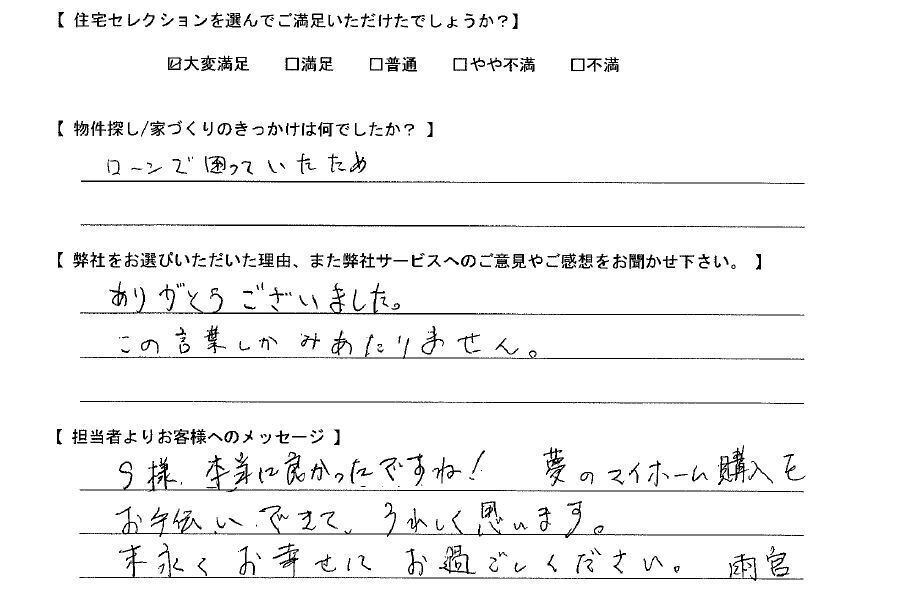 【 住宅セレクションを選んでご満足いただけたでしょうか？】
☑大変満足 □満足 □普通 □やや不満 □不満
【 物件探し/家づくりのきっかけは何でしたか？ 】
ローンで困っていたため
【 弊社をお選びいただいた理由、また弊社サービスへのご意見やご感想をお聞かせ下さい。 】
ありがとうございました。
この言葉しかみあたりません。
【 担当者よりお客様へのメッセージ 】
S様、本当に良かったですね！ 夢のマイホーム購入を
お手伝いできて、うれしく思います。
末永くお幸せにお過ごしください。 雨宮